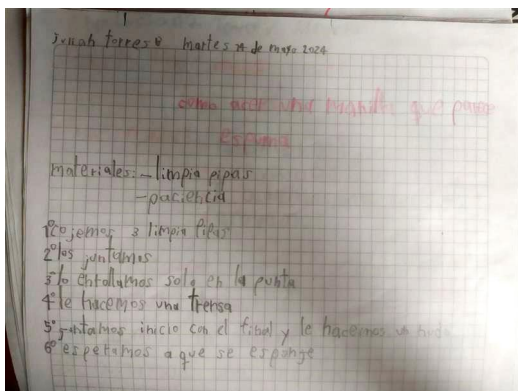 jonah torres martes 14 de mayo 2024
como acer una manilla que parese
espuma
materiales: - limpia pipas
- paciencia
1º cojemos 3 limpia pipas
2º los juntamos
3º lo enrollamos solo en la punta
4º le hacemos una trensa
5º juntamos inicio con el final y le hacemos un nudo
6º esperamos a que se esponje